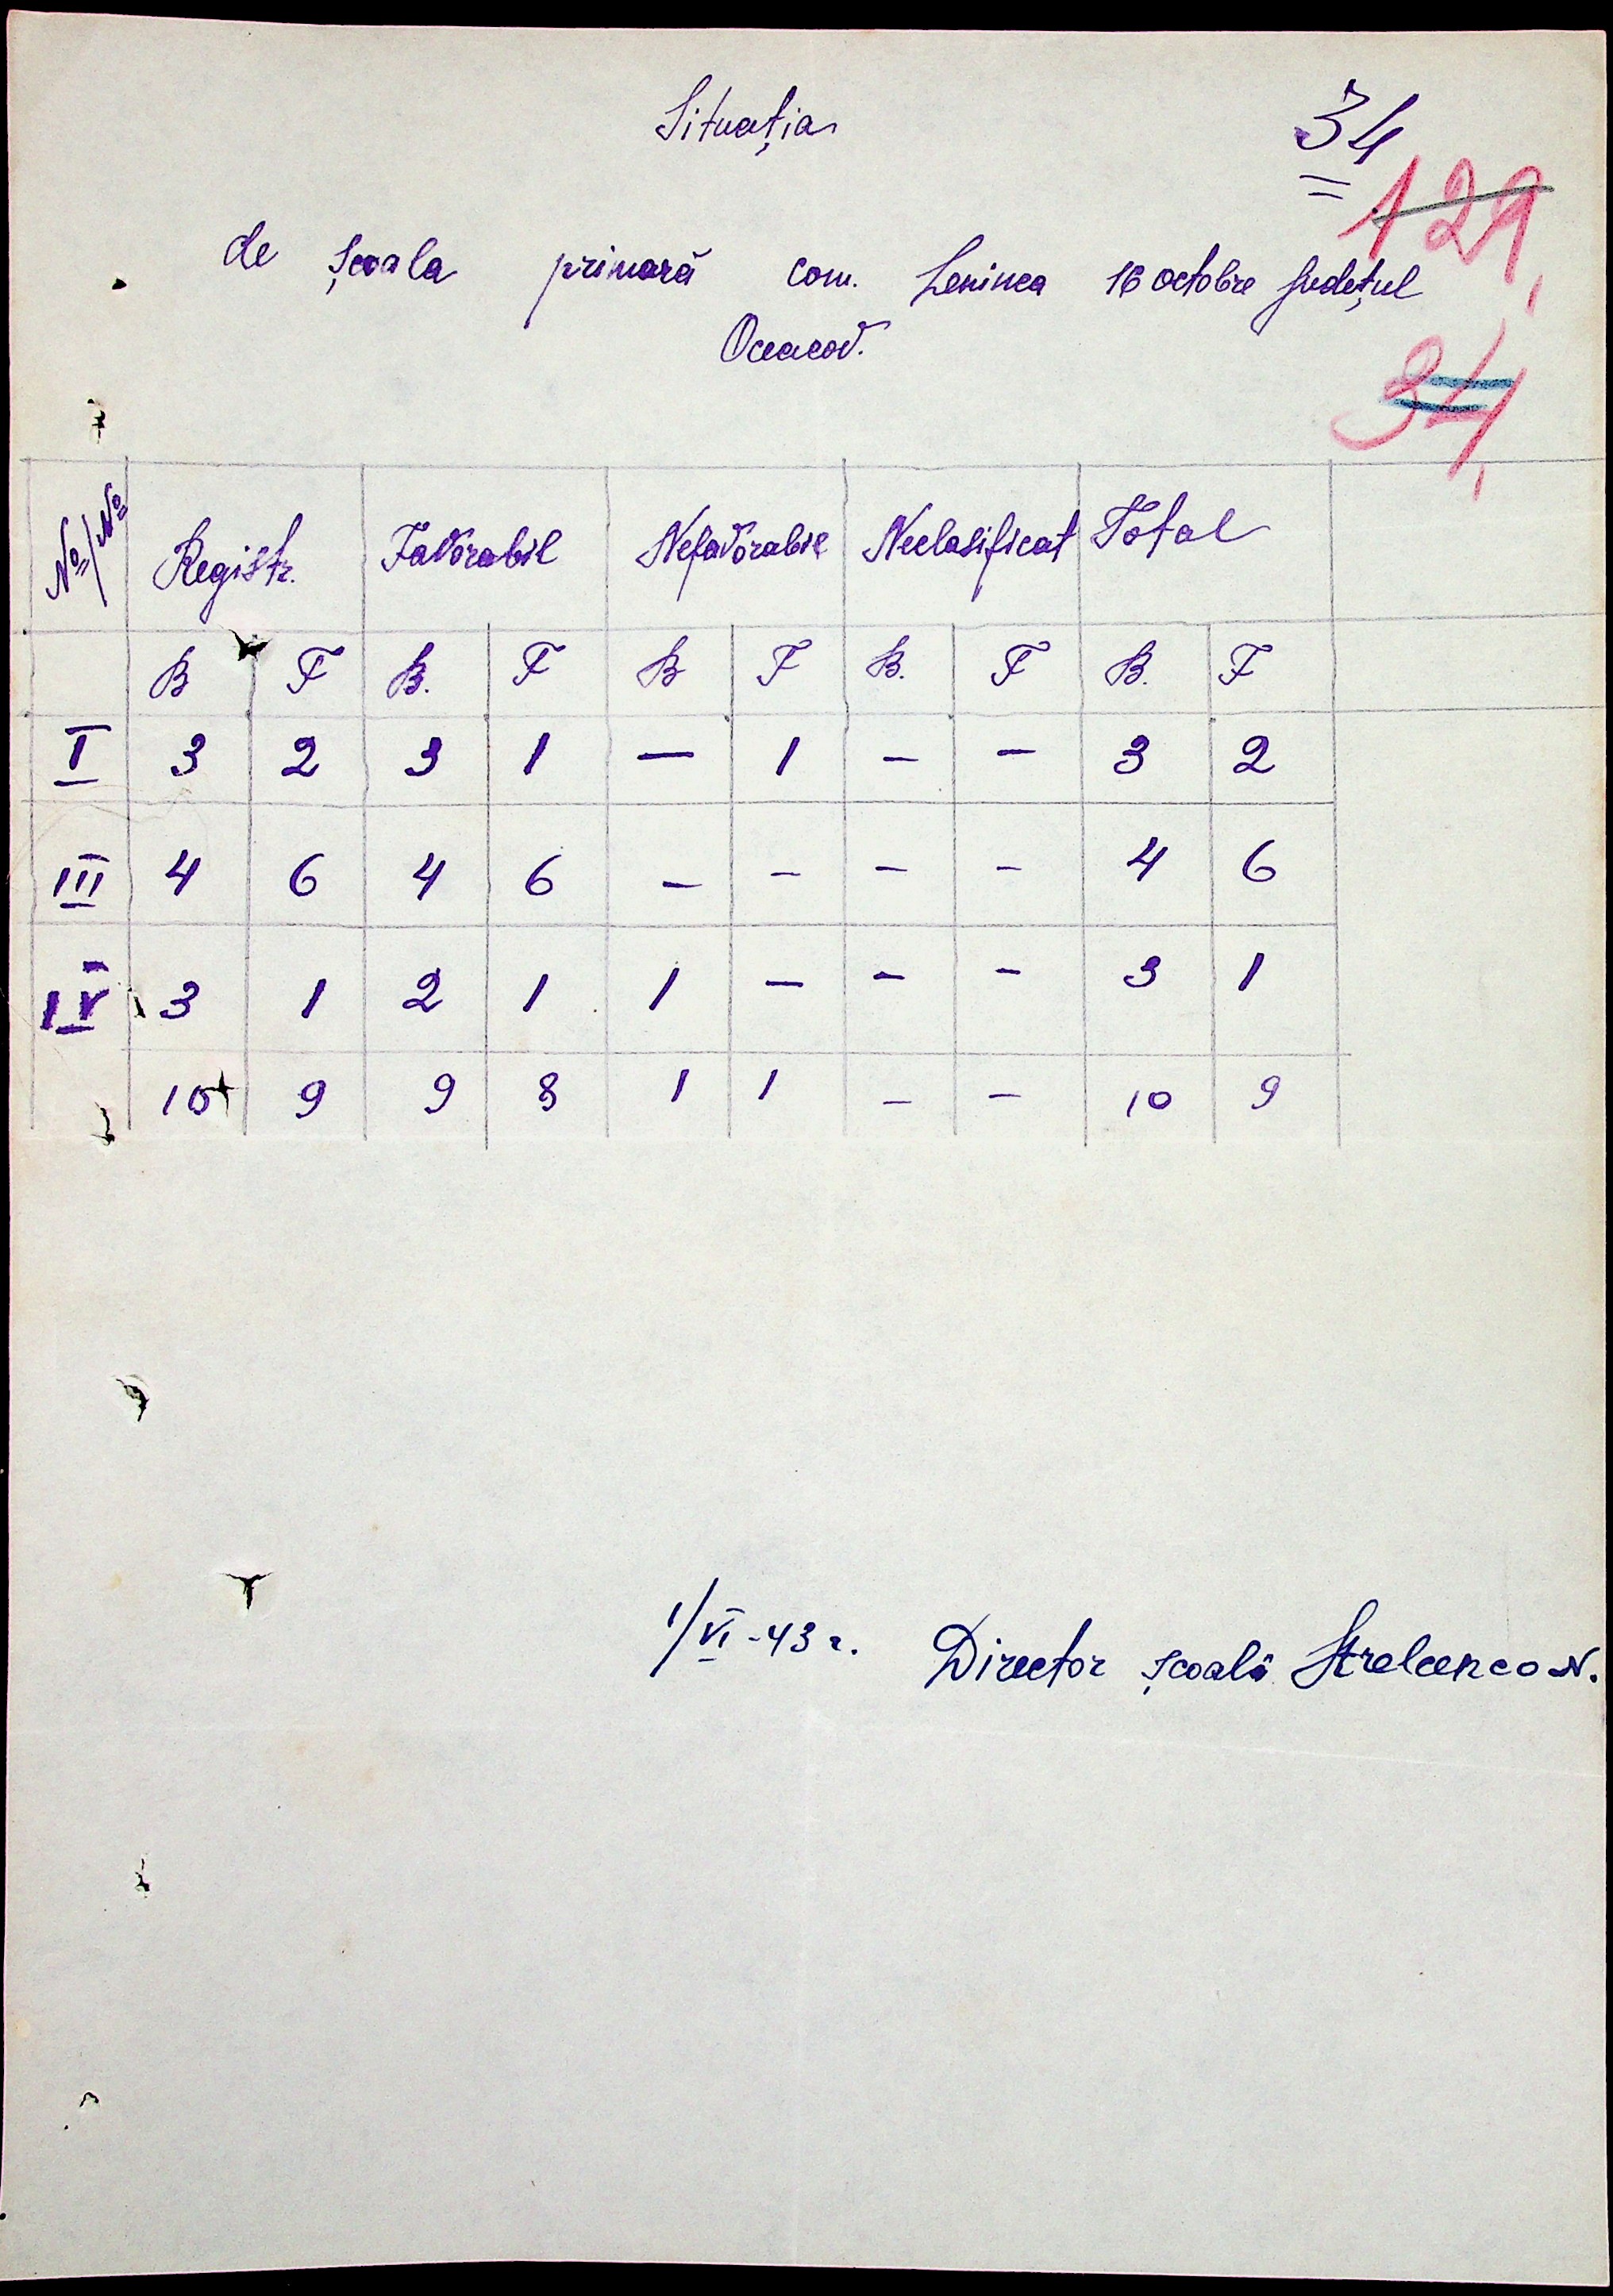 Situația
34
129,
de școala primară com. Leninca 16 octobre județul
Oceacov.
34,
№/№ Registr. Favorabil Nefavorabil Neclasificat Total
B F B. F B F B. F B. F
I 3 2 3 1 — 1 – – 3 2
III 4 6 4 6 – – – – 4 6
IV 3 1 2 1 1 – – – 3 1
10 9 9 8 1 1 – – 10 9
1/VI-43 г. Director școală Strelcenco N.